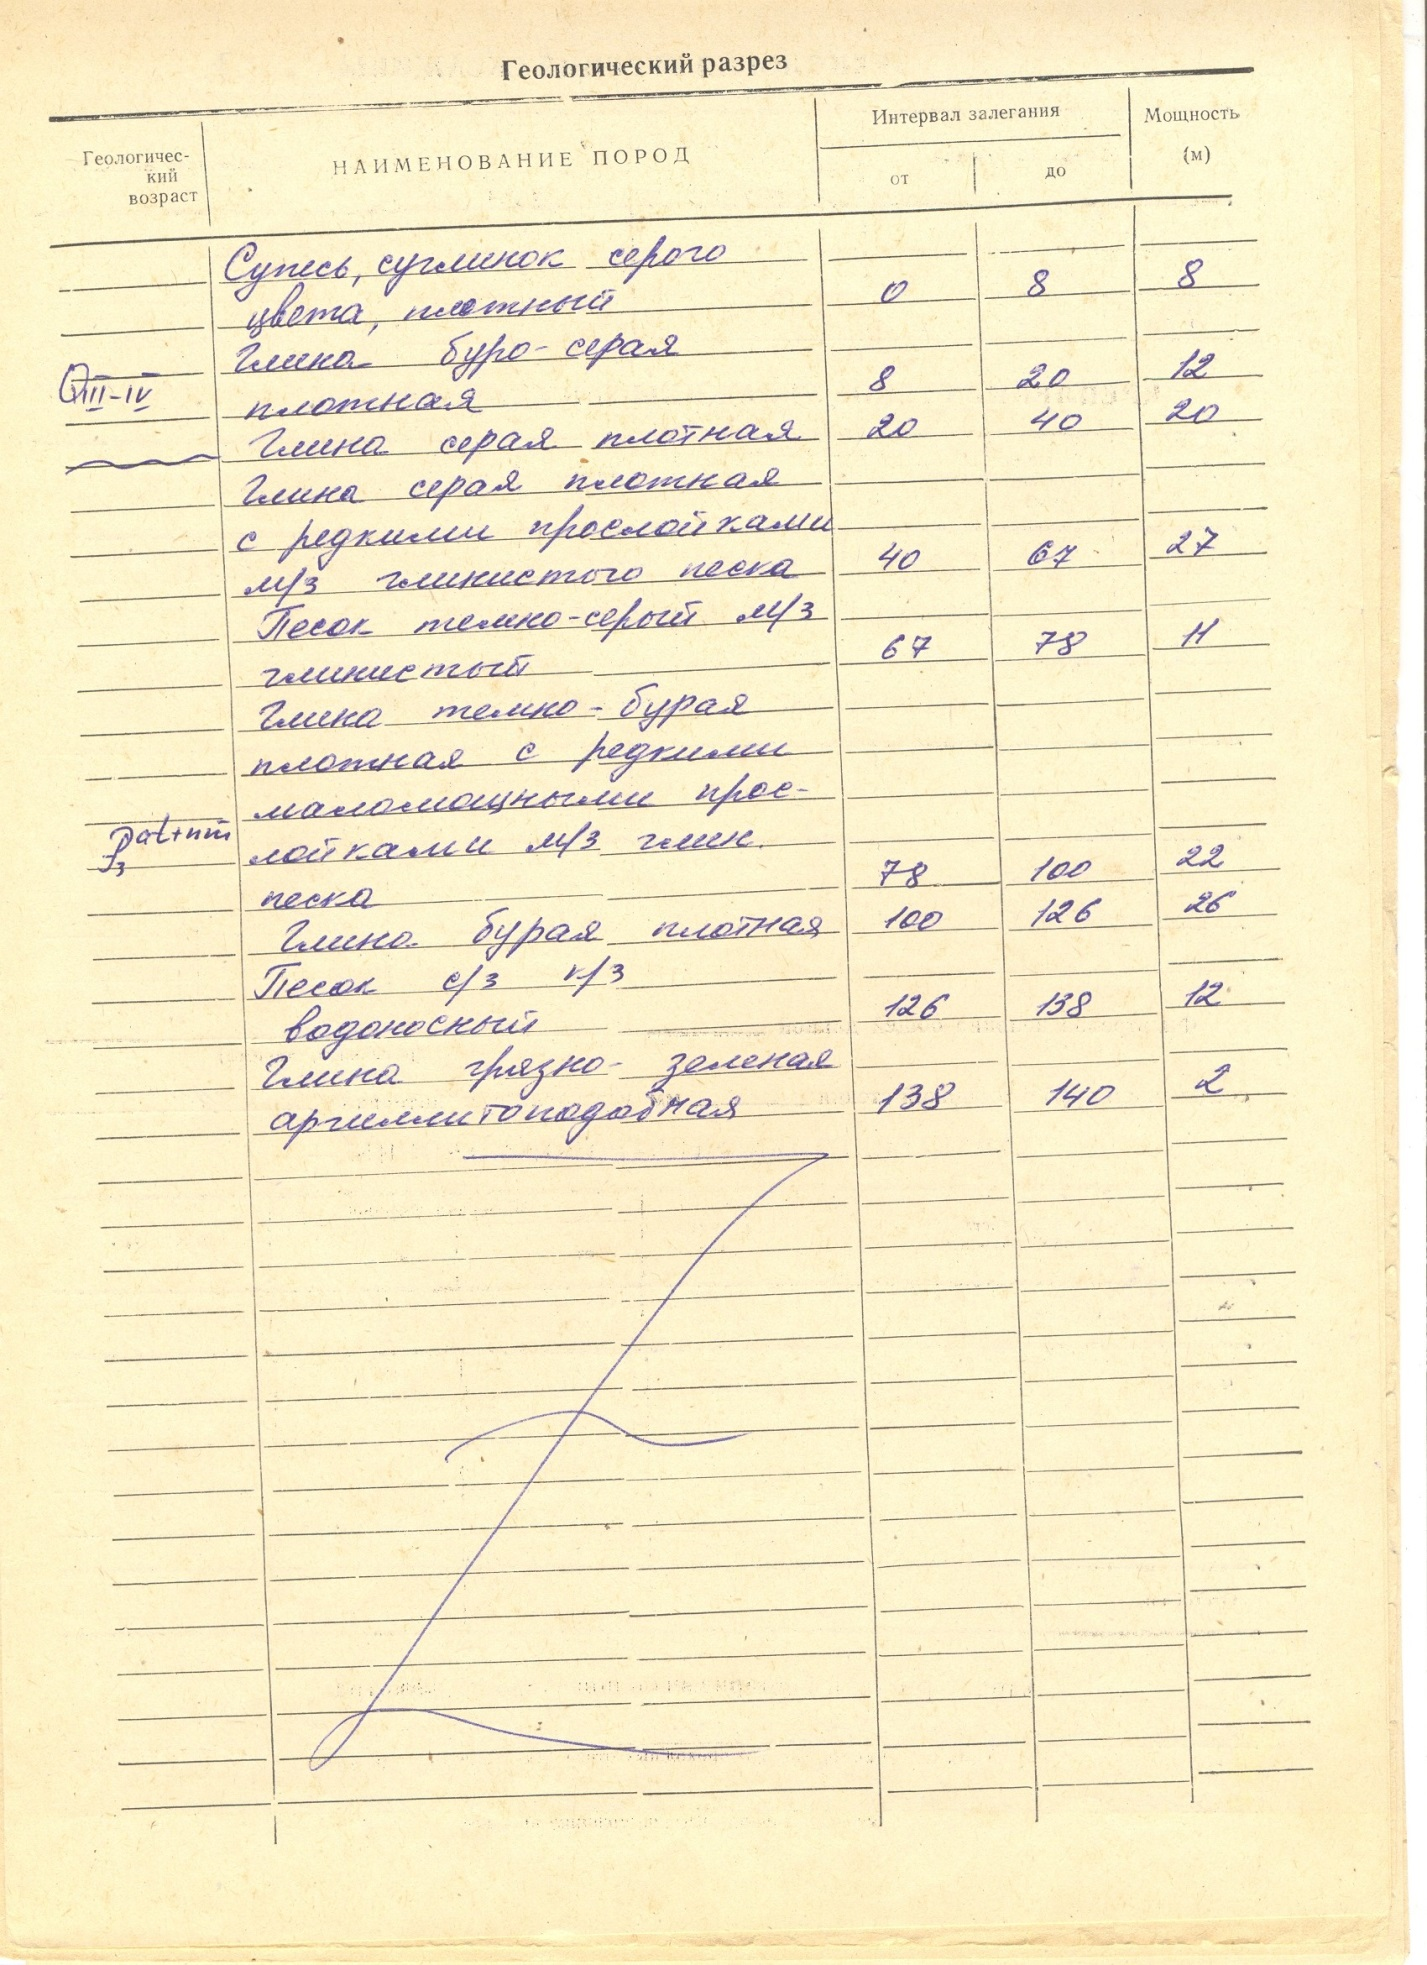 Геологический разрез
Геологичес-
кий
возраст
НАИМЕНОВАНИЕ ПОРОД
Интервал залегания
от
до
Мощность
(м)
Супесь, суглинок серого
цвета, плотный 0 8 8
Глина буро-серая
QIII-IV плотная 8 20 12
Глина серая плотная 20 40 20
Глина серая плотная
с редкими прослойками
м/з глинистого песка 40 67 27
Песок темно-серый м/з
глинистый 67 78 11
Глина темно-бурая
плотная с редкими
маломощными прос-
P3 лойками м/з глин.
песка 78 100 22
Глина бурая плотная 100 126 26
Песок с/з к/з
водоносный 126 138 12
Глина грязно-зеленая
аргиллитоподобная 138 140 2